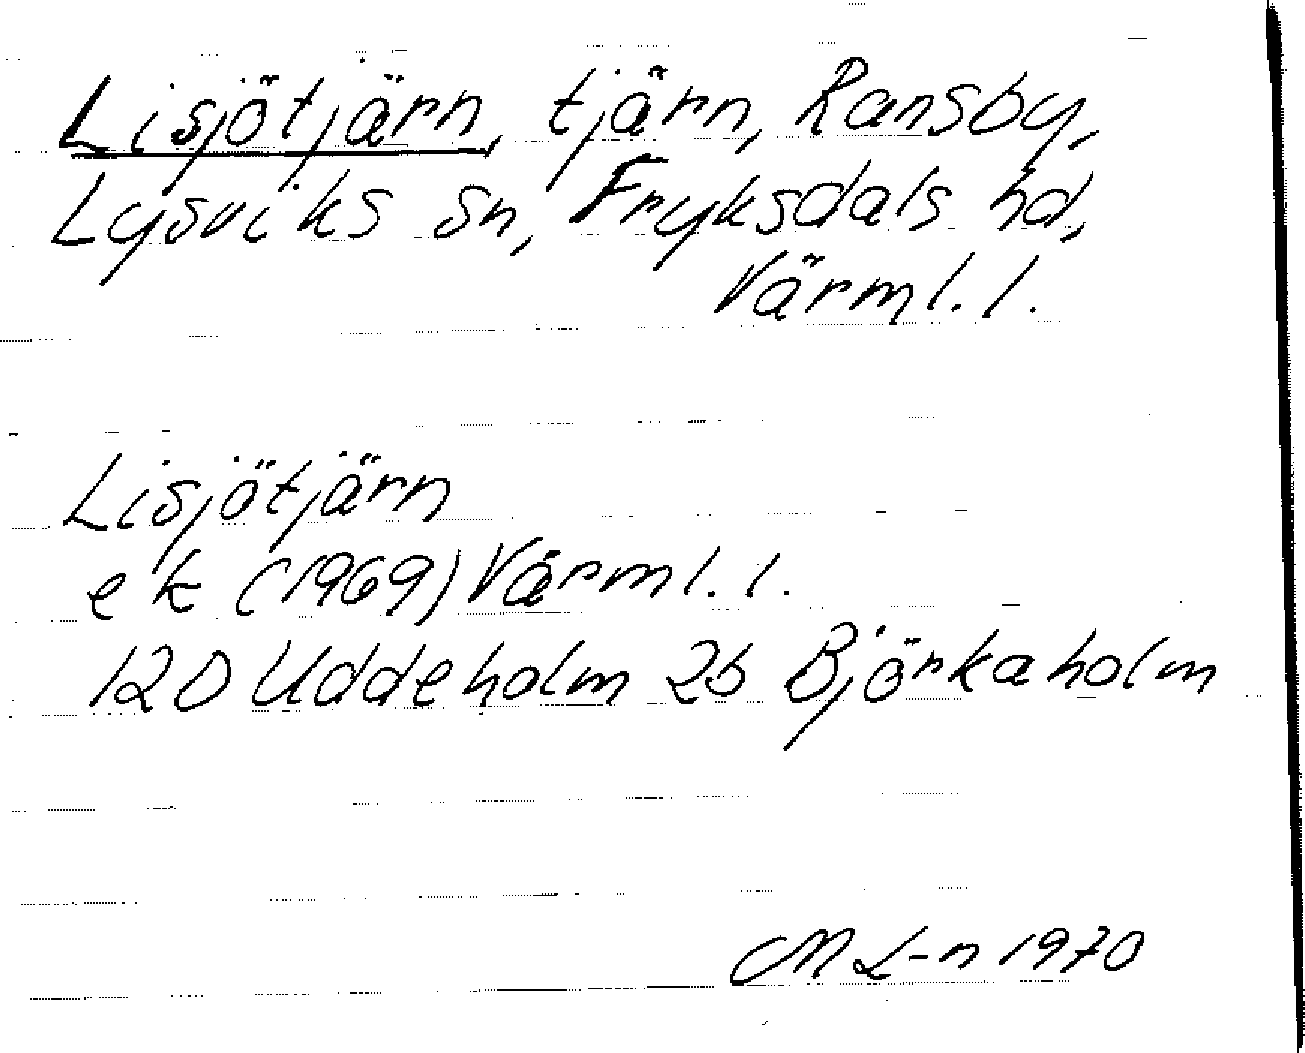 Lisjötjärn, tjärn, Ransby,
Lysviks sn, Fryksdals hd,
Värml. l.
Lisjötjärn
ek (1969) Värml. l.
12D Uddeholm 2b Björkaholm
ML-n 1970